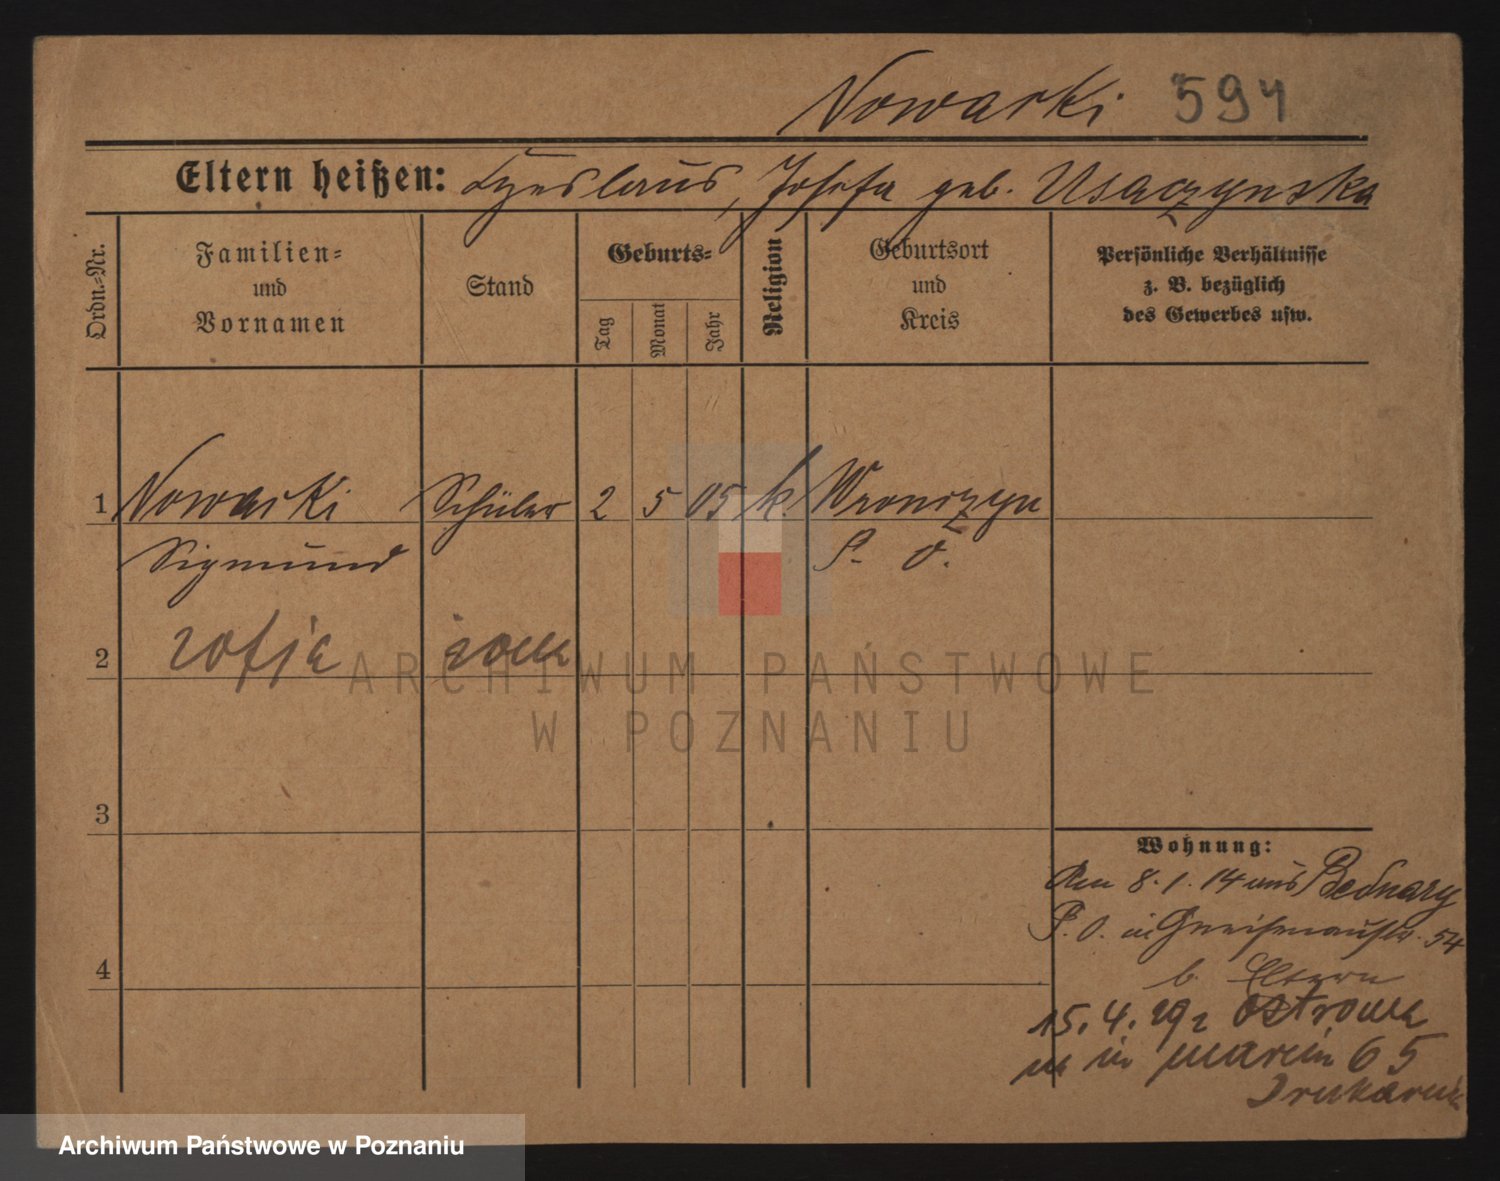 Nowacki 594
Eltern heißen: Czeslaus, Josefa geb. Usaczynska
Ordn.-Nr.
Familien-
und
Vornamen
Stand
Geburts-
Tag
Monat
Jahr
Religion
Geburtsort
und
Kreis
Persönliche Verhältnisse
z. B. bezüglich
des Gewerbes usw.
1 Nowacki Schüler 2 5 05 k. Wronczyn
Sigmund P. O.
2 zofja żona
ARCHIWUM PAŃSTWOWE
W POZNANIU
3
Wohnung:
Am 8.1.14 aus Bednary
P. O. in Gneisenaustr. 54
b. Eltern
4
15.4.29 z Ostrowa
marcin 65
Drukarnia
Archiwum Państwowe w Poznaniu